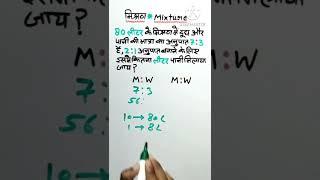 मिश्रण Mixture
80 लीटर के मिश्रण में दूध और
पानी की मात्रा का अनुपात 7:3
है, 2:1 अनुपात बनाने के लिए
इसमें कितना लीटर पानी मिलाया
जाय ?
M : W M : W
7 : 3
56 :
10 → 80 L
1 → 8 L